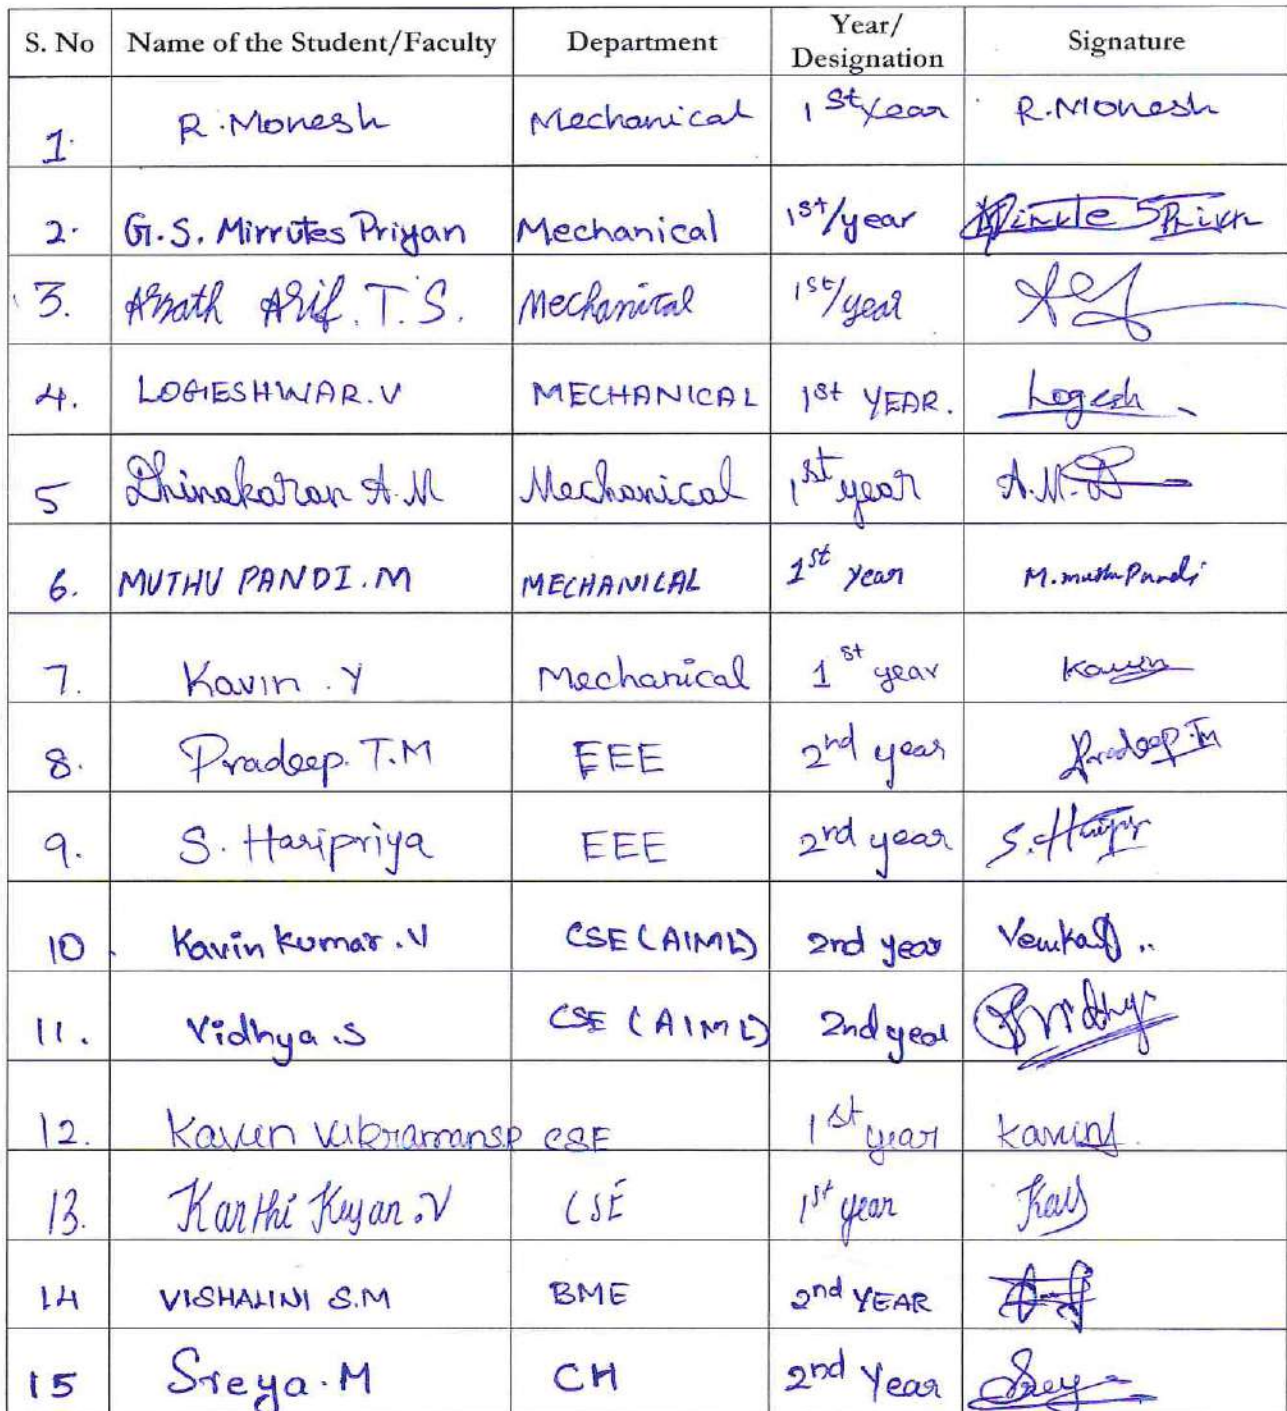 S. No Name of the Student/Faculty Department Year/ Designation Signature
1. R. Monesh Mechanical 1st Year R. Monesh
2. G.S. Mirrutes Priyan Mechanical 1st/year
3. Arif. T. S. Mechanical 1st/year
4. LOGIESHWAR. V MECHANICAL 1st YEAR. Logesh
5 Dhinakaran A. M Mechanical 1st year A.M.D
6. MUTHU PANDI. M MECHANICAL 1st Year M. muthu Pandi
7. Kavin . Y Mechanical 1st year Kavin
8. Pradeep. T.M EEE 2nd year Pradeep. Tm
9. S. Haripriya EEE 2nd year S. Haripr
10. Kavin kumar . V CSE (AIML) 2nd year
11. Vidhya .S CSE (AIML) 2nd year Vidhya
12. Kavin Vikraman SP CSE 1st year Kavin
13. Karthi Keyan . V CSE 1st year
14 VISHALINI S.M BME 2nd YEAR
15 Sreya . M CH 2nd Year Sreya